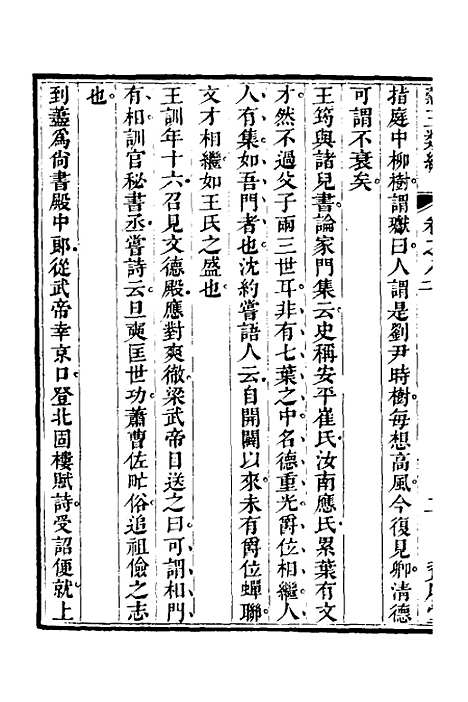 指庭中柳樹謂瓛曰人謂是劉尹時樹每想高風今復見卿清德
可謂不衰矣
王筠與諸兒書論家門集云史稱安平崔氏汝南應氏累葉有文
才然不過父子兩三世耳非有七葉之中名德重光爵位相繼人
人有集如吾門者也沈約嘗語人云自開闢以來未有爵位蟬聯
文才相繼如王氏之盛也
王訓年十六召見文德殿應對爽徹梁武帝目送之曰可謂相門
有相訓官秘書丞嘗詩云旦奭匡世功蕭曹佐甿俗追祖儉之志
也
到藎爲尚書殿中郎從武帝幸京口登北固樓賦詩受詔便就上